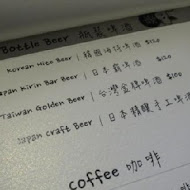 Bottle Beer 瓶裝啤酒
Korean Hite Beer | 韓國海特啤酒 $120
Japan Kirin Bar Beer | 日本 麒啤酒 $120
Taiwan Golden Beer | 台灣金牌啤酒 $100
Japan Craft Beer | 日本 精釀手工啤酒
coffee 咖啡